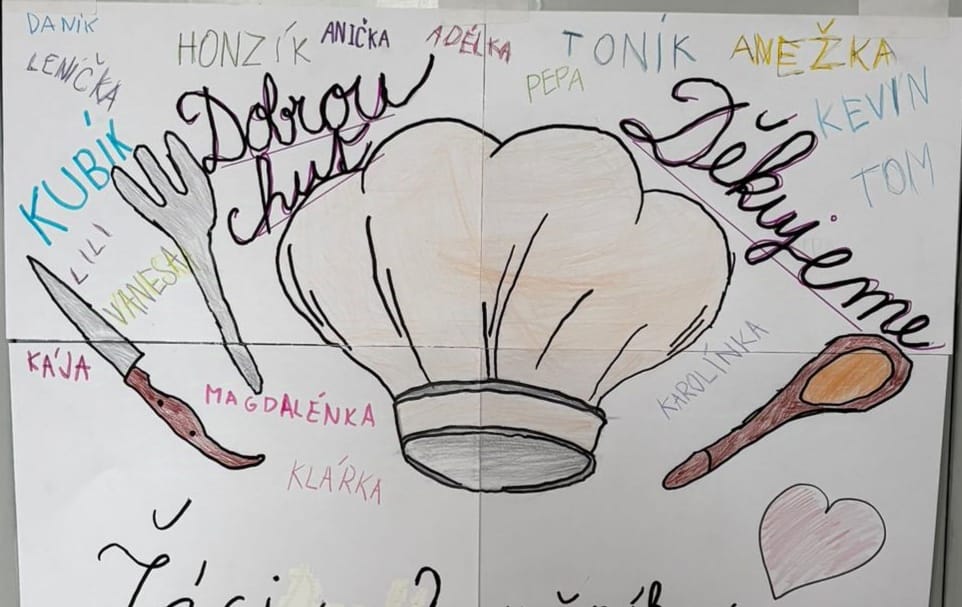 DANÍK
HONZÍK
ANIČKA
ADÉLKA
TONÍK
ANEŽKA
LENIČKA
PEPA
KEVIN
Dobrou
chuť
Děkujeme
KUBÍK
TOM
LILI
VANESA
KÁJA
MAGDALÉNKA
KAROLÍNKA
KLÁRKA
Žáci